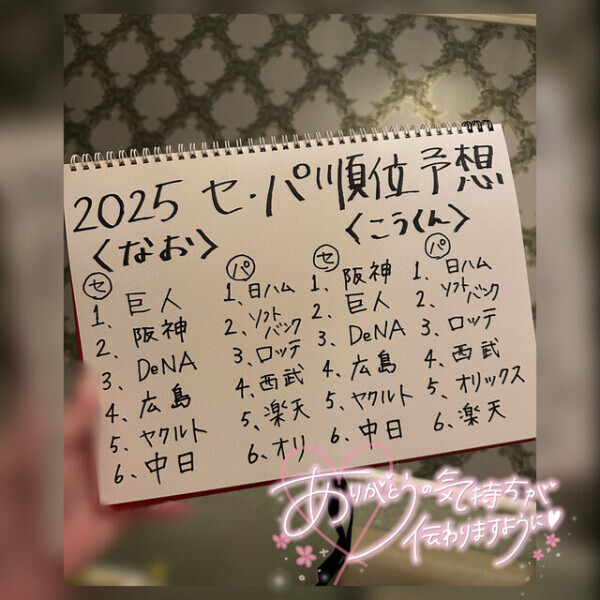 2025 セ・パ順位予想
<なお>
セ
1. 巨人
2. 阪神
3. DeNA
4. 広島
5. ヤクルト
6. 中日
パ
1. 日ハム
2. ソフト
バンク
3. ロッテ
4. 西武
5. 楽天
6. オリ
<こうくん>
セ
1. 阪神
2. 巨人
3. DeNA
4. 広島
5. ヤクルト
6. 中日
パ
1. 日ハム
2. ソフト
バンク
3. ロッテ
4. 西武
5. オリックス
6. 楽天
ありがとうの気持ちが
伝わりますように♥